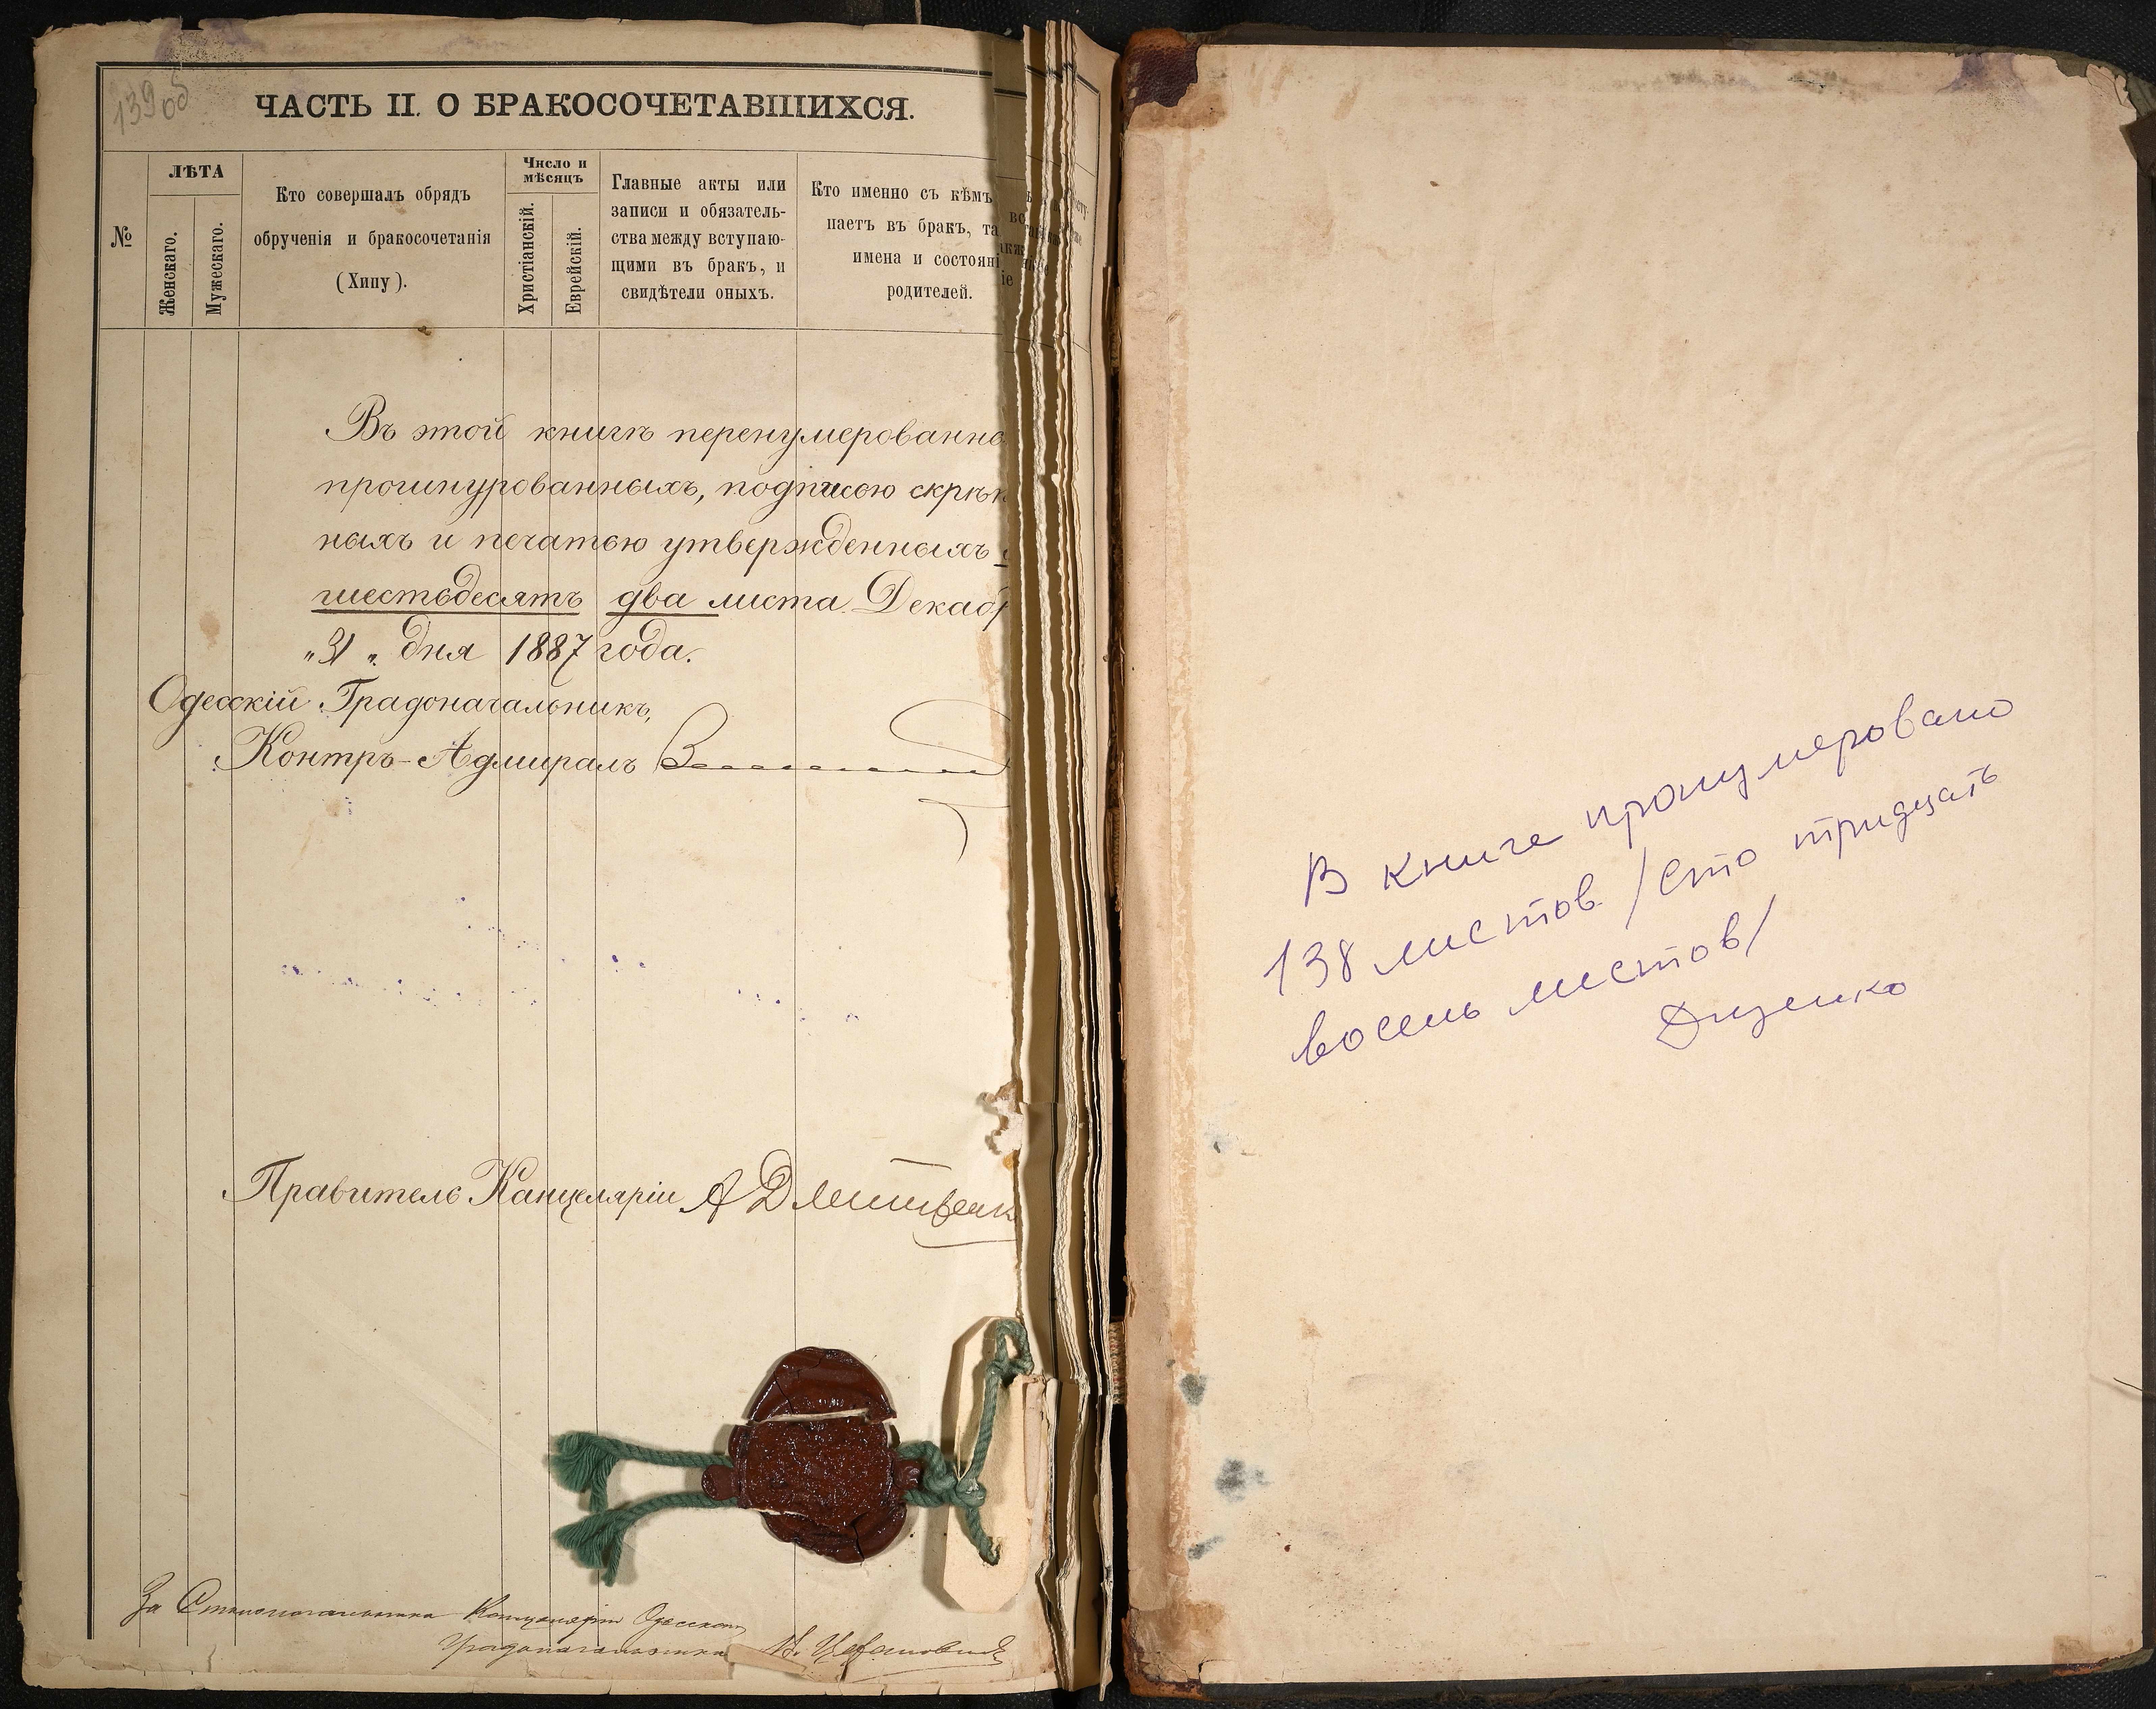 139 об
ЧАСТЬ II. О БРАКОСОЧЕТАВШИХСЯ.
№
ЛѢТА
Женскаго.
Мужескаго.
Кто совершалъ обрядъ
обрученія и бракосочетанія
(Хипу).
Число и
мѣсяцъ
Христіанскій.
Еврейскій.
Главные акты или
записи и обязатель-
ства между вступаю-
щими въ бракъ, и
свидѣтели оныхъ.
Кто именно съ кѣмъ
паетъ въ бракъ, та
имена и состояні
родителей.
Въ этой книгѣ перенумерованно
прошнурованныхъ, подписью скрѣп
ныхъ и печатью утвержденныхъ
шестьдесятъ два листа. Декабр
„31„ дня 1887 года.
Одесскій Градоначальникъ,
Контръ-Адмиралъ
Правитель Канцеляріи А
За Столоначальника Канцеляріи Одесскаго
Градоначальника
В книге пронумеровано
138 листов /сто тридцать
восемь листов/